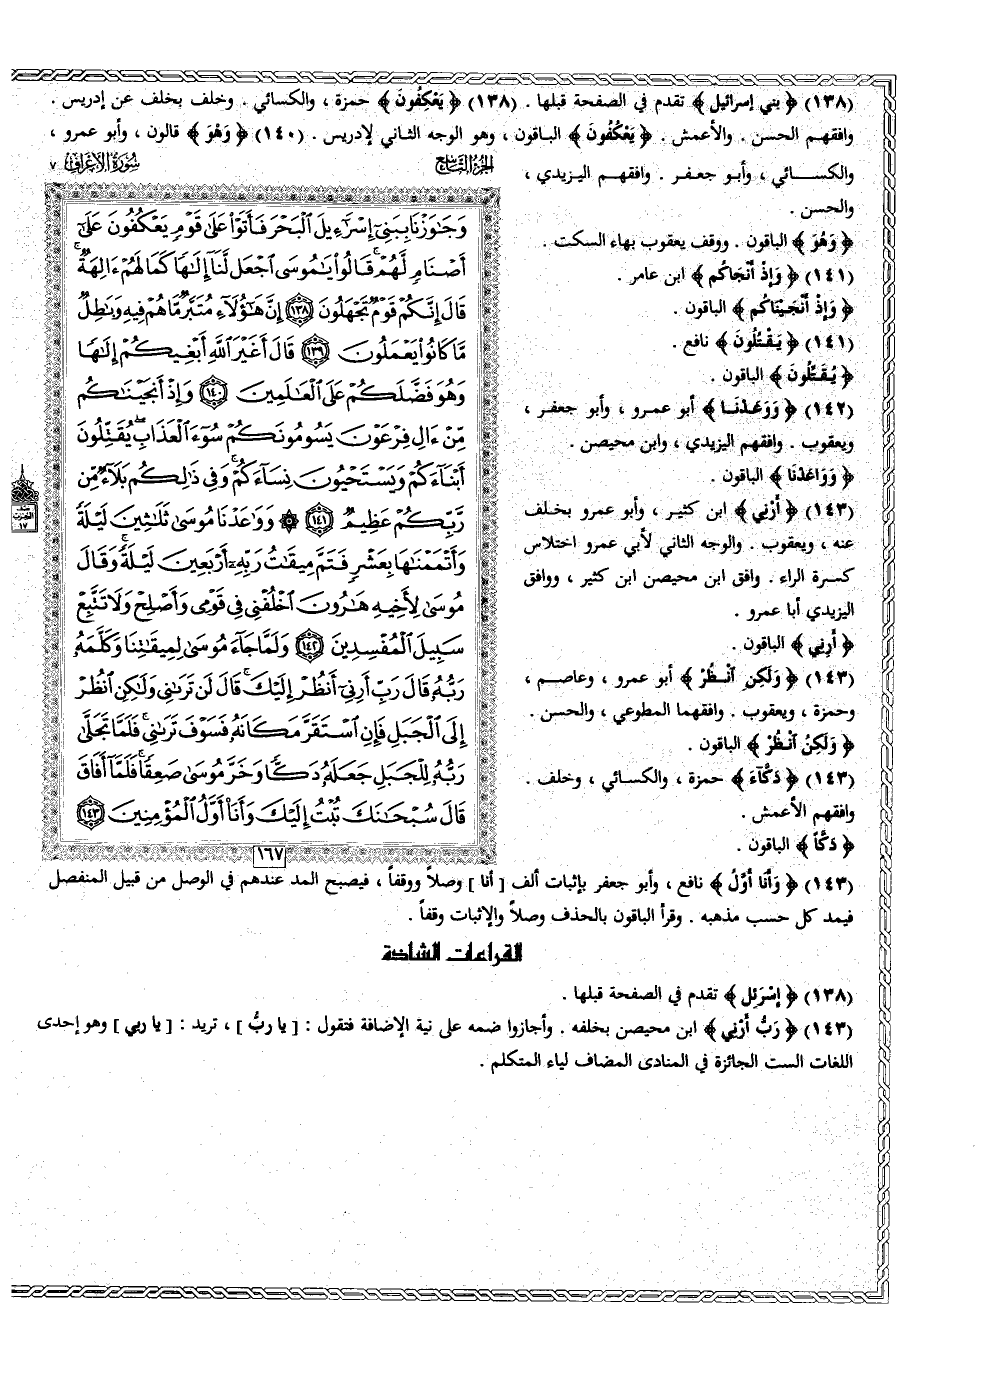 (١٣٨) ﴿ بني إسرائيل ﴾ تقدم في الصفحة قبلها . (١٣٨) ﴿ يَعْكِفُونَ ﴾ حمزة ، والكسائي . وخلف بخلف عن إدريس .
وافقهم الحسن . والأعمش . ﴿ يَعْكُفُونَ ﴾ الباقون ، وهو الوجه الثاني لإدريس . (١٤٠) ﴿ وَهْوَ ﴾ قالون ، وأبو عمرو ،
والكسائي ، وأبو جعفر . وافقهم اليزيدي ،
والحسن .
﴿ وَهُوَ ﴾ الباقون . ووقف يعقوب بهاء السكت .
(١٤١) ﴿ وَإِذْ أَنْجَاكُم ﴾ ابن عامر .
﴿ وَإِذْ أَنْجَيْنَاكُم ﴾ الباقون .
(١٤١) ﴿ يَقْتُلُونَ ﴾ نافع .
﴿ يُقَتِّلُونَ ﴾ الباقون .
(١٤٢) ﴿ وَوَعَدْنَا ﴾ أبو عمرو ، وأبو جعفر ،
ويعقوب . وافقهم اليزيدي ، وابن محيصن .
﴿ وَوَاعَدْنَا ﴾ الباقون .
(١٤٣) ﴿ أَرْنِي ﴾ ابن كثير ، وأبو عمرو بخلف
عنه ، ويعقوب . والوجه الثاني لأبي عمرو اختلاس
كسرة الراء . وافق ابن محيصن ابن كثير ، ووافق
اليزيدي أبا عمرو .
﴿ أَرِنِي ﴾ الباقون .
(١٤٣) ﴿ وَلَكِنِ انْظُرْ ﴾ أبو عمرو ، وعاصم ،
وحمزة ، ويعقوب . وافقهما المطوعي ، والحسن .
﴿ وَلَكِنُ انْظُرْ ﴾ الباقون .
(١٤٣) ﴿ دَكَّآءَ ﴾ حمزة ، والكسائي ، وخلف .
وافقهم الأعمش .
﴿ دَكّاً ﴾ الباقون .
سُورَةُ الأَعْرَافِ ٧
الجُزْءُ التَّاسِعُ
وَجَٰوَزْنَا بِبَنِىٓ إِسْرَٰٓءِيلَ ٱلْبَحْرَ فَأَتَوْا۟ عَلَىٰ قَوْمٍ يَعْكُفُونَ عَلَىٰٓ
أَصْنَامٍ لَّهُمْ ۚ قَالُوا۟ يَٰمُوسَى ٱجْعَل لَّنَآ إِلَٰهًا كَمَا لَهُمْ ءَالِهَةٌ ۚ
قَالَ إِنَّكُمْ قَوْمٌ تَجْهَلُونَ ١٣٨ إِنَّ هَٰٓؤُلَآءِ مُتَبَّرٌ مَّا هُمْ فِيهِ وَبَٰطِلٌ
مَّا كَانُوا۟ يَعْمَلُونَ ١٣٩ قَالَ أَغَيْرَ ٱللَّهِ أَبْغِيكُمْ إِلَٰهًا
وَهُوَ فَضَّلَكُمْ عَلَى ٱلْعَٰلَمِينَ ١٤٠ وَإِذْ أَنجَيْنَٰكُم
مِّنْ ءَالِ فِرْعَوْنَ يَسُومُونَكُمْ سُوٓءَ ٱلْعَذَابِ ۖ يُقَتِّلُونَ
أَبْنَآءَكُمْ وَيَسْتَحْيُونَ نِسَآءَكُمْ ۚ وَفِى ذَٰلِكُم بَلَآءٌ مِّن
رَّبِّكُمْ عَظِيمٌ ١٤١ ۞ وَوَٰعَدْنَا مُوسَىٰ ثَلَٰثِينَ لَيْلَةً
وَأَتْمَمْنَٰهَا بِعَشْرٍ فَتَمَّ مِيقَٰتُ رَبِّهِۦٓ أَرْبَعِينَ لَيْلَةً ۚ وَقَالَ
مُوسَىٰ لِأَخِيهِ هَٰرُونَ ٱخْلُفْنِى فِى قَوْمِى وَأَصْلِحْ وَلَا تَتَّبِعْ
سَبِيلَ ٱلْمُفْسِدِينَ ١٤٢ وَلَمَّا جَآءَ مُوسَىٰ لِمِيقَٰتِنَا وَكَلَّمَهُۥ
رَبُّهُۥ قَالَ رَبِّ أَرِنِىٓ أَنظُرْ إِلَيْكَ ۚ قَالَ لَن تَرَىٰنِى وَلَٰكِنِ ٱنظُرْ
إِلَى ٱلْجَبَلِ فَإِنِ ٱسْتَقَرَّ مَكَانَهُۥ فَسَوْفَ تَرَىٰنِى ۚ فَلَمَّا تَجَلَّىٰ
رَبُّهُۥ لِلْجَبَلِ جَعَلَهُۥ دَكًّا وَخَرَّ مُوسَىٰ صَعِقًا ۚ فَلَمَّآ أَفَاقَ
قَالَ سُبْحَٰنَكَ تُبْتُ إِلَيْكَ وَأَنَا۠ أَوَّلُ ٱلْمُؤْمِنِينَ ١٤٣
١٦٧
(١٤٣) ﴿ وَأَنَا أَوَّلُ ﴾ نافع ، وأبو جعفر بإثبات ألف [ أنا ] وصلاً ووقفاً ، فيصبح المد عندهم في الوصل من قبيل المنفصل
فيمد كل حسب مذهبه . وقرأ الباقون بالحذف وصلاً والإثبات وقفاً .
القراءات الشاذة
(١٣٨) ﴿ إسْرَئِل ﴾ تقدم في الصفحة قبلها .
(١٤٣) ﴿ رَبُّ أَرْنِي ﴾ ابن محيصن بخلفه . وأجازوا ضمه على نية الإضافة فتقول : [ يا ربُّ ] ، تريد : [ يا ربي ] وهو إحدى
اللغات الست الجائزة في المنادى المضاف لياء المتكلم .